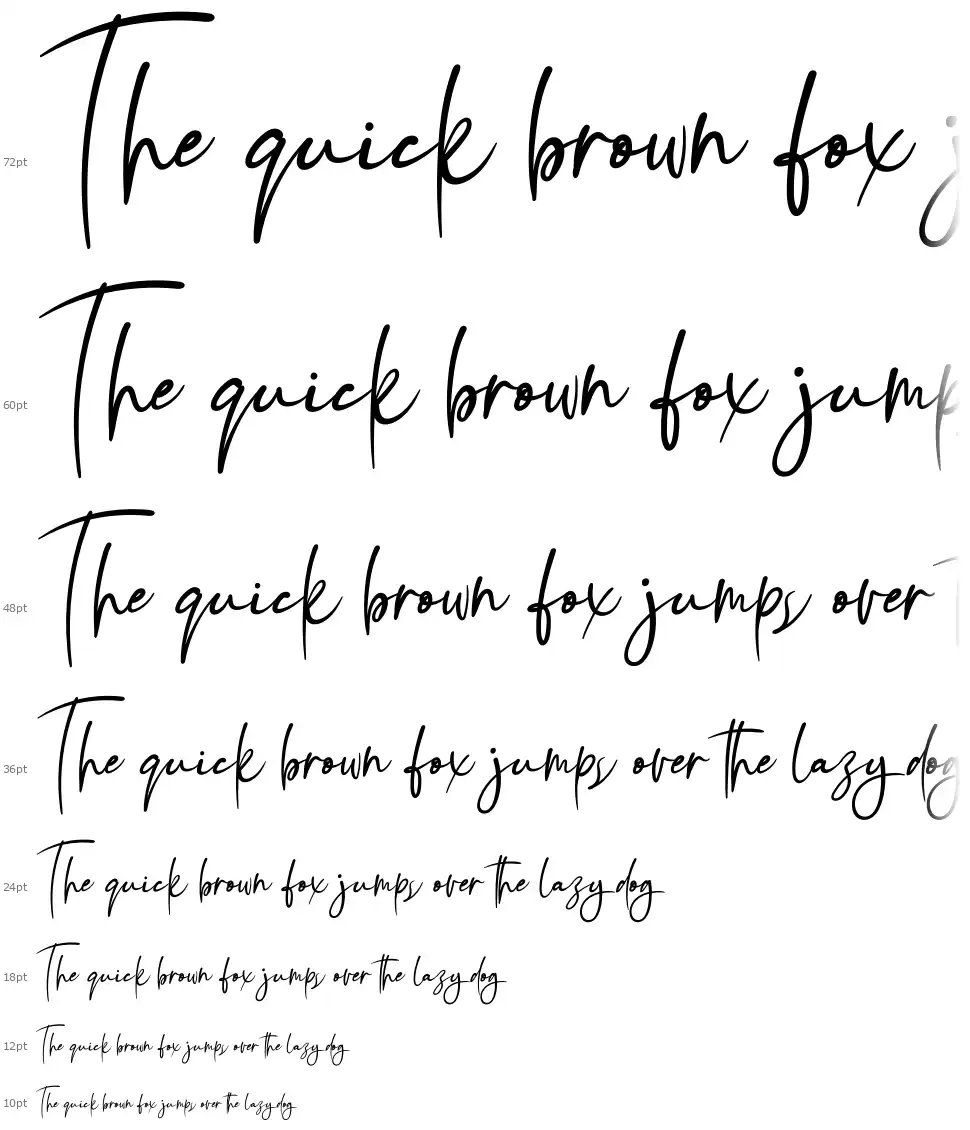 72pt The quick brown fox j
60pt The quick brown fox jump
48pt The quick brown fox jumps over
36pt The quick brown fox jumps over the lazy dog
24pt The quick brown fox jumps over the lazy dog
18pt The quick brown fox jumps over the lazy dog
12pt The quick brown fox jumps over the lazy dog
10pt The quick brown fox jumps over the lazy dog